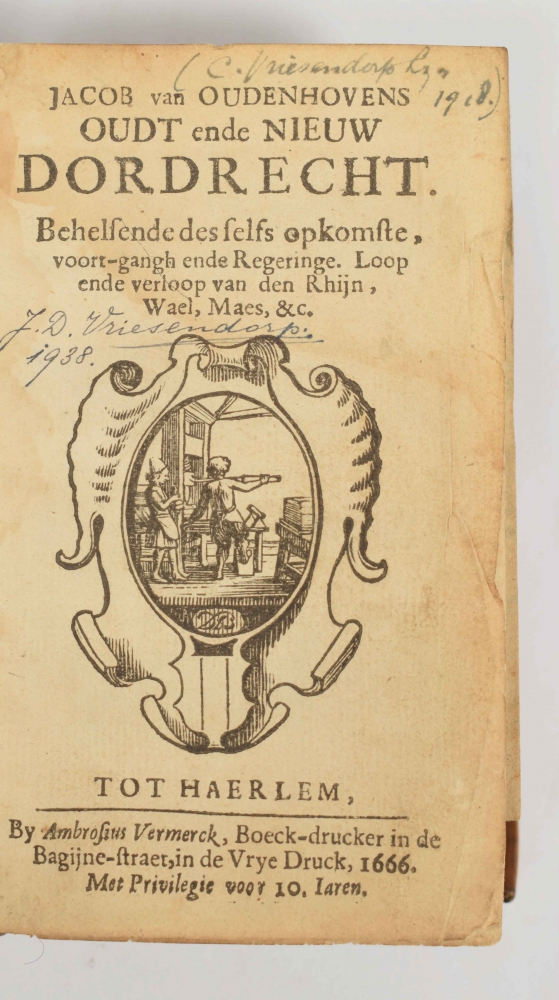 (C. Vriesendorp Lzn
1918.)
JACOB van OUDENHOVENS
OUDT ende NIEUW
DORDRECHT.
Behelſende des ſelfs opkomſte,
voort-gangh ende Regeringe. Loop
ende verloop van den Rhijn,
Wael, Maes, &c.
J. D. Vriesendorp.
1938.
TOT HAERLEM,
By Ambroſius Vermerck, Boeck-drucker in de
Bagijne-ſtraet, in de Vrye Druck, 1666.
Met Privilegie voor 10. Iaren.